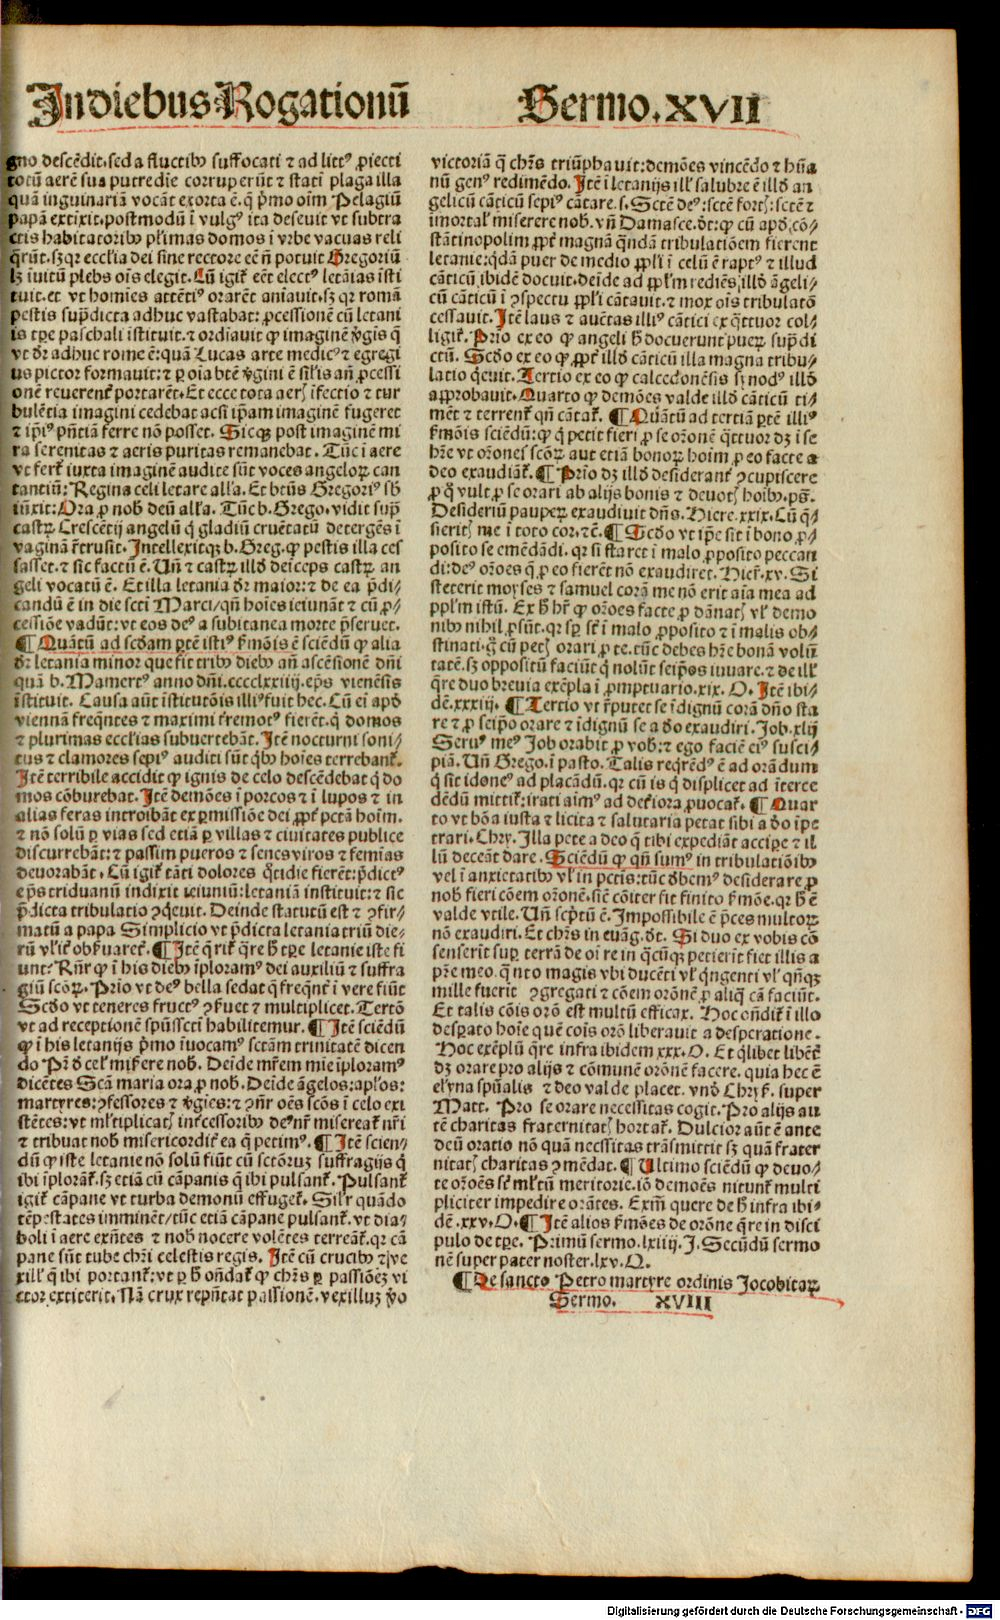 Indiebus Rogationū
Sermo. XVII
gno descēdit. sed a fluctibꝰ suffocati ⁊ ad littꝰ ꝓiecti
totū aerē sua putredīe corruperūt ⁊ statī plaga illa
quā inguinariā vocāt exorta ē. q̄ pͥmo oīm Pelagiū
papā extixit. postmodū ī vulgꝰ ita deseuit vt subtra
ctis habitatoribꝰ pl̄imas domos ī vrbe vacuas reli
q̄rūt. Sꝫ qꝛ eccl̄ia dei sine rectore eē n̄ potuit Gregoriū
lꝫ īuitū plebs oīs elegit. Cū igit̄ eēt electꝰ letaīas īsti
tuit. et vt homīes attētiꝰ orarēt aniauit. sꝫ qꝛ romā
pestis sup̄dicta adhuc vastabat: ꝓcessionē cū letani
is tꝑe paschali īstituit. ⁊ ordīauit ꝙ imaginē v̄gis q̄
vt dr̄ adhuc rome ē: quā Lucas arte medicꝰ ⁊ egregi
us pictor formauit: ⁊ ꝑ oīa btē v̄gini ē sil̄is an̄ ꝓcessi
onē reuerent̄ portarēt. Et ecce tota aerꝭ īfectio ⁊ tur
bulētia imagini cedebat acsi ip̄am imaginē fugeret
⁊ ip̄iꝰ pn̄tiā ferre nō posset. Sicqꝫ post imaginē mi
ra serenitas ⁊ aeris puritas remanebat. Tūc ī aere
vt fert̄ iuxta imaginē audite sūt voces angeloꝝ can
tantiū: Regina celi letare all'a. Et btūs Gregoriꝰ sb̄
iūxit: Ora ꝓ nob̄ deū all'a. Tūc b. Grego. vidit sup̄
castꝝ Crescētij angelū q̄ gladiū cruētatū detergēs ī
vaginā r̄trusit. Intellexitqꝫ b. Greg. ꝙ pestis illa ces
sasset. ⁊ sic factū ē. Un̄ ⁊ castꝝ illd̄ deīceps castꝝ an
geli vocatū ē. Et illa letania dr̄ maior: ⁊ de ea p̄di⸗
candū ē in die scti Marci/ qn̄ hoīes ieiunāt ⁊ cū ꝓ⸗
cessiōe vadūt: vt eos deꝰ a subitanea morte p̄seruet.
¶ Quātū ad scd̄am ꝑtē istiꝰ ẜmōis ē sciēdū ꝙ alia
dr̄ letania minor que fit tribꝰ diebꝰ an̄ ascēsionē dn̄i
quā b. Mamertꝰ anno dn̄i. cccclxxiiij. ep̄s vienēsis
īstituit. Causa aūt īstitutōis illiꝰ fuit hec. Cū ei apd̄
viennā freqn̄tes ⁊ maximi t̄remotꝰ fierēt. q̄ domos
⁊ plurimas eccl̄ias subuertebāt. Itē nocturni soni⸗
tus ⁊ clamores sepiꝰ auditi sūt q̄bꝰ hoīes terrebant̄.
Itē terribile accidit ꝙ ignis de celo descēdebat q̄ do
mos cōburebat. Itē demōes ī porcos ⁊ ī lupos ⁊ in
alias feras introibāt ex ꝑmissiōe dei ꝓpt̄ pctā hoīm.
⁊ nō solū ꝑ vias sed etiā ꝑ villas ⁊ ciuitates publice
discurrebāt: ⁊ passim pueros ⁊ senes viros ⁊ femīas
deuorabāt. Cū igit̄ tāti dolores q̄tidie fierēt: p̄dictꝰ
ep̄s triduanū indixit ieiuniū: letaniā instituit: ⁊ sic
p̄dicta tribulatio ꝯq̄euit. Deinde statutū est ⁊ ꝯfir⸗
matū a papa Simplicio vt p̄dicta letania triū die⸗
rū vl̓r obẜuaret̄. ¶ Itē q̄rit̄ q̄re h̄ tꝑe letanie iste fi
unt. Rn̄r ꝙ ī his diebꝰ īploramꝰ dei auxiliū ⁊ suffra
giū scōꝝ. Prīo vt deꝰ bella sedat q̄ freqn̄t ī vere fiūt
Scd̄o vt teneres fructꝰ ꝯẜuet ⁊ multiplicet. Tertō
vt ad receptionē spūssc̄ti habilitemur. ¶ Itē sciēdū
ꝙ ī his letanijs pͥmo īuocamꝰ sctām trinitatē dicen
do Pr̄ d̄ cel' miẜere nob. Deīde mr̄em mie īploramꝰ
dicētes Scā maria ora ꝓ nob. Deīde āgelos: ap̄los:
martyres: ꝯfessores ⁊ v̄gīes: ⁊ ꝯn̄r oēs scōs ī celo exi
stētes: vt ml̓tiplicatꝭ int̄cessoribꝰ deꝰ nr̄ misereat̄ nr̄i
⁊ tribuat nob̄ misericordit̄ ea q̄ petimꝰ. ¶ Itē scien⸗
dū ꝙ iste letanie nō solū fiūt cū sctōrum suffragijs q̄
ibi īplorāt̄. sꝫ etiā cū cāpanis q̄ ibi pulsant̄. Pulsant̄
igit̄ cāpane vt turba demonū effuget̄. Sil̓r quādo
tēpestates imminēt/ tūc etiā cāpane pulsant̄. vt dia⸗
boli ī aere exn̄tes ⁊ nob̄ nocere volētes terreāt̄. qꝛ cā
pane sūt tube chr̄i celestis regis. Itē cū crucibꝰ ⁊ ve
xill' q̄ ibi portant̄: vt ꝑ h̄ on̄dat̄ ꝙ chr̄s ꝑ passiōeꝫ vi
ctor extiterit. Nā crux repn̄tat passionē. vexilluꝫ v̄o
victoriā q̄ chr̄s triūphauit: demōes vincēdo ⁊ hūa
nū genꝰ redimēdo. Itē ī letanijs ill' salubre ē illd̄ an
gelicū cāticū sepiꝰ cātare. s. Sctē deꝰ: sctē fortꝭ: sctē ⁊
imortal' miserere nob. vn̄ Damasce. dt: ꝙ cū apd̄ cō⸗
stātinopolim ꝓpt̄ magnā q̄ndā tribulatiōem fierent
letanie: q̄dā puer de medio ppl̄i ī celū ē raptꝰ ⁊ illud
cāticū ibidē docuit. deīde ad ppl̄m rediēs, illd̄ āgeli⸗
cū cāticū ī ꝯspectu ppl̄i cātauit. ⁊ mox oīs tribulatō
cessauit. Itē laus ⁊ auētas illiꝰ cātici ex q̄ttuor col⸗
ligit̄. Prīo ex eo ꝙ angeli h̄ docuerunt pueꝝ sup̄di
ctū. Scd̄o ex eo ꝙ ꝓpt̄ illd̄ cāticū illa magna tribu⸗
latio q̄euit. Tertio ex eo ꝙ calcedonēsis synodꝰ illd̄
approbauit. Quarto ꝙ demōes valde illd̄ cāticū ti⸗
mēt ⁊ terrent̄ qn̄ cātat̄. ¶ Quātū ad tertiā ꝑtē illiꝰ
ẜmōis sciēdū: ꝙ q̄ petit fieri ꝓ se orōnē q̄ttuor dꝫ ī se
hr̄e vt orōnes scōꝝ aut etiā bonoꝝ hoīm ꝓ eo facte a
deo exaudiāt̄. ¶ Prīo dꝫ illd̄ desiderant̄ ꝯcupiscere
ꝓ q̄ vult ꝓ se orari ab alijs bonis ⁊ deuotꝭ hoībꝰ. ps̄.
Desideriū paupeꝝ exaudiuit dn̄s. Hiere. xxix. Cū q̄⸗
sieritꝭ me ī toto cor. ⁊c̄. ¶ Scd̄o vt ip̄e sit ī bono ꝓ⸗
posito se emēdādi. qꝛ si staret ī malo ꝓposito peccan
di: deꝰ orōes q̄ ꝓ eo fierēt nō exaudiret. Hier̄. xv. Si
steterit moyses ⁊ samuel corā me nō erit aīa mea ad
ppl̄m istū. Ex h̄ hr̄ ꝙ orōes facte ꝓ dānatꝭ vl' demo
nibꝰ nihil ꝓsūt. qꝛ sꝑ st̄ ī malo ꝓposito ⁊ ī malis ob⸗
stinati. g̊ cū petꝭ orari ꝓ te. tūc debes hr̄e bonā volū
tatē. sꝫ oppositū faciūt q̄ nolūt seip̄os iuuare. ⁊ de ill'
q̄re duo breuia exēpla ī ꝓmptuario. xix. O. Itē ibi⸗
dē. xxxiij. ¶ Tertio vt r̄putet se īdignū corā dn̄o sta
re ⁊ ꝓ seip̄o orare ⁊ īdignū se a do exaudiri. Job. xlij
Seruꝰ meꝰ Job orabit ꝓ vob̄: ⁊ ego faciē eiꝰ susci⸗
piā. Un̄ Grego. ī pasto. Talis reqr̄edꝰ ē ad orādum
q̄ sit idoneꝰ ad placādū. qꝛ cū is q̄ displicet ad īterce
dēdū mittit̄: irati aīmꝰ ad det̄iora ꝓuocat̄. ¶ Quar
to vt bōa iusta ⁊ licita ⁊ salutaria petat sibi a do īpe
trari. Chry. Illa pete a deo q̄ tibi expediāt accipe ⁊ il
lū deceāt dare. Sciēdū ꝙ qn̄ sumꝰ in tribulatiōibꝰ
vel ī anxietatibꝰ vl' in pctīs: tūc dēbemꝰ desiderare ꝓ
nob̄ fieri cōem orōnē. sic̄ cōiter fit finito ẜmōe. qꝛ h̄ ē
valde vtile. Un̄ scp̄tū ē. Impossibile ē p̄ces multoꝝ
nō exaudiri. Et chr̄s in euāg. dt. Si duo ex vobis cō
senserīt suꝑ terrā de oī re in q̄cūqꝫ petierīt fiet illis a
pr̄e meo. q̄nto magis vbi ducēti vl' q̄ngenti vl' qn̄qꝫ
mille fuerīt ꝯgregati ⁊ cōem orōnē ꝓ aliq̄ cā faciūt.
Et talis cōis orō est multū efficax. Hoc on̄dit̄ ī illo
desꝑato hoīe quē cōis orō liberauit a desperatione.
Hoc exēplū q̄re infra ibidem xxx. O. Et q̄libet libēt̄
dꝫ orare pro alijs ⁊ cōmunē orōnē facere. quia hec ē
elyna spūalis ⁊ deo valde placet. vnd̄ Chrys̄. super
Matt. Pro se orare necessitas cogit. Pro alijs au
tē charitas fraternitatꝭ hortat̄. Dulcior aūt ē ante
deū oratio nō quā necssitas trāsmittit sꝫ quā frater
nitatꝭ charitas ꝯmēdat. ¶ Ultimo sciēdū ꝙ deuo⸗
te orōes st̄ ml̓tū meritorie. iō demoēs nitunt̄ multi
pliciter impedire orātes. Exm̄ quere de h̄ infra ibi⸗
dē. xxv. O. ¶ Itē alios ẜmōes de orōne q̄re in disci
pulo de tꝑe. Primū sermo. lxiiij. I. Secūdū sermo
nē super pater noster. lxv. Q.
¶ De sancto Petro martyre ordinis Jocobitaꝝ
Sermo. XVIII
Digitalisierung gefördert durch die Deutsche Forschungsgemeinschaft - DFG